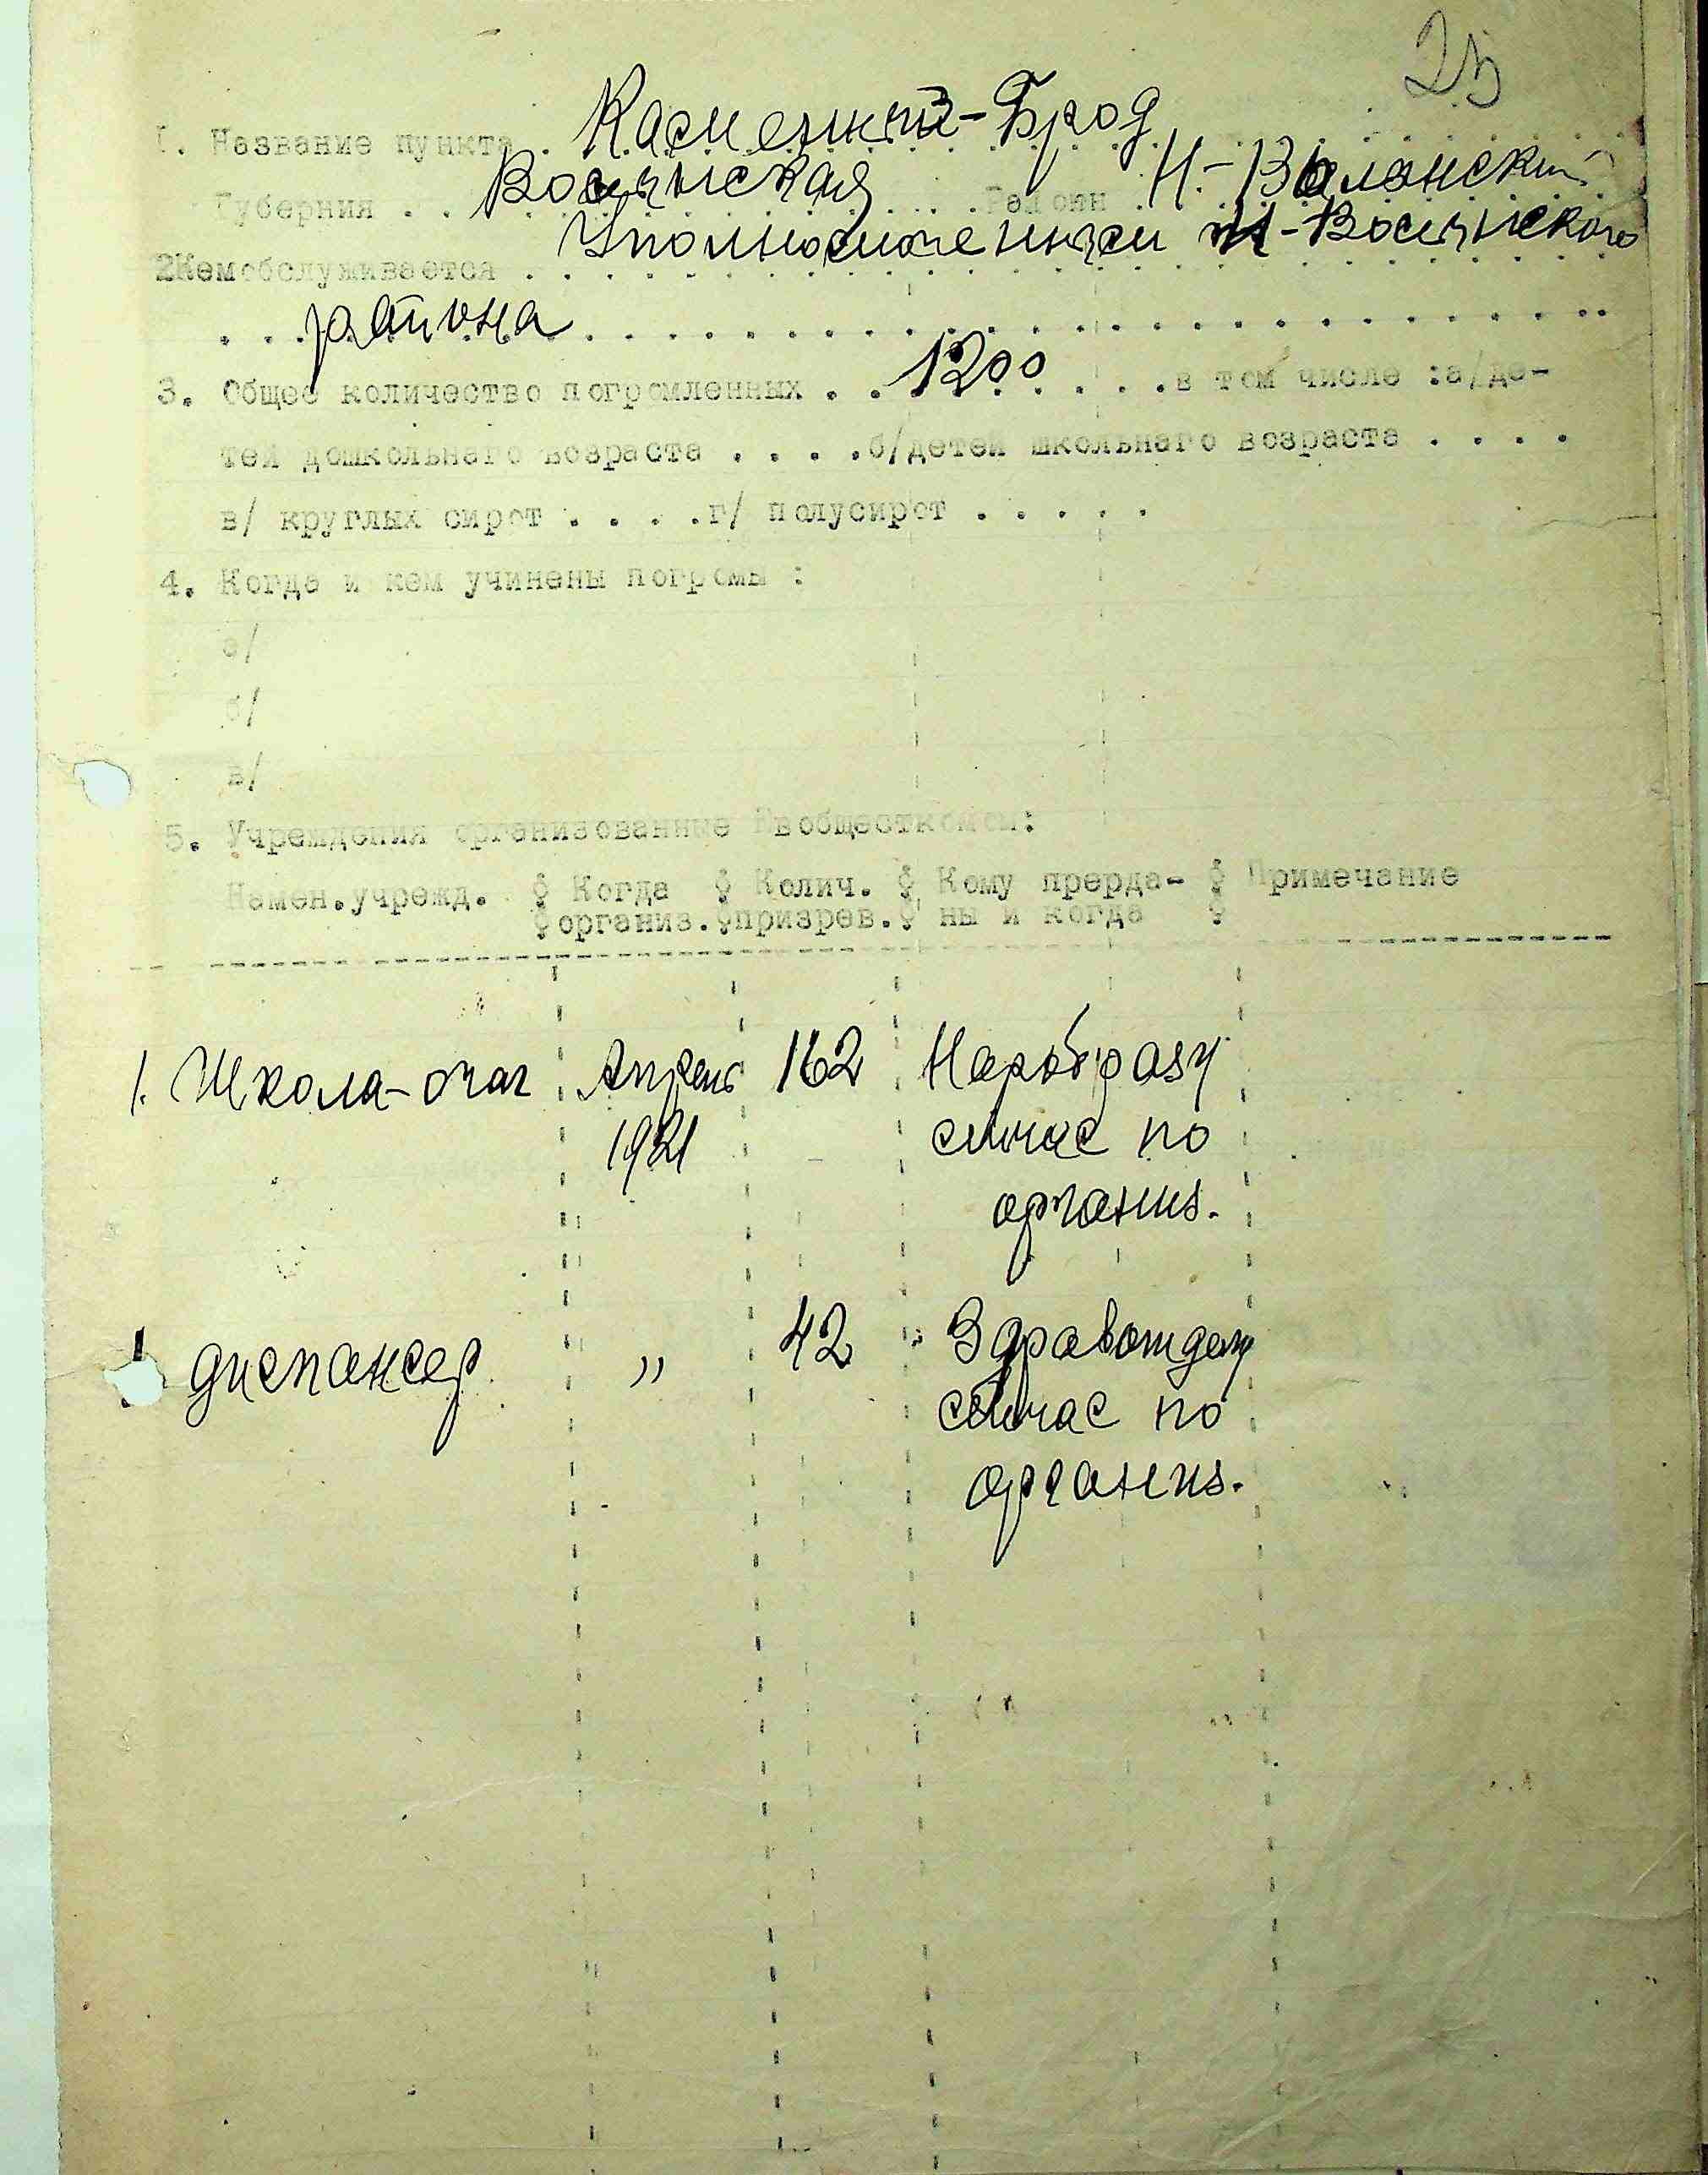 25
1. Название пункта . Каменный-Брод
Губерния . . Волынская . . . Район . Н.-Волынский
2 Кем обслуживается . Уполномоченным Н-Волынского
. . района . . . . . . . . . . . . . . . . . . . . . . .
3. Общее количество погромленных . . 1200 . . . в том числе :а/де-
тей дошкольнаго возраста . . . . б/детей школьнаго возраста . . . .
в/ круглых сирот . . . . г/ полусирот . . . . .
4. Когда и кем учинены погромы :
а/
б/
в/
5. Учреждения организованные Евобщесткомом:
Намен.учрежд. Когда Колич. Кому прерда- Примечание
организ. призрев. ны и когда
1. Школа-очаг Апрель 162 Наробразу
1921 сейчас по
организ.
диспансер " 42 Здравотделу
сейчас по
организ.